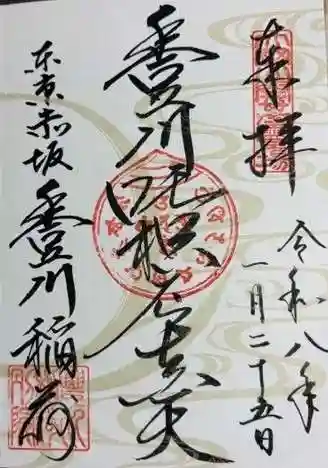 奉拝
令和八年
一月二十五日
豊川吒枳尼真天
東京赤坂 豊川稲荷